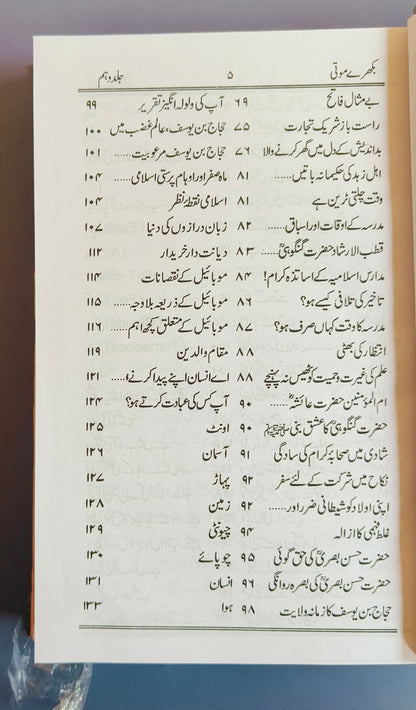 بکھرے موتی ۵ جلد دہم
بے مثال فاتح ۶۹
راست باز شریک تجارت ۷۵
بداندیش کے دل میں گھر کرنے والا ۷۶
اہل زہد کی حکیمانہ باتیں...... ۸۱
وقت چلتی ٹرین ہے ۸۱
مدرسہ کے اوقات اور اسباق...... ۸۲
قطب الارشاد حضرت گنگوہیؒ ۸۳
مدارس اسلامیہ کے اساتذہ کرام! ۸۴
تاخیر کی تلافی کیسے ہو؟ ۸۶
مدرسہ کا وقت کہاں صرف ہو؟ ۸۷
انتظار کی بھٹی ۸۸
علم کی غیرت و حمیت کو ٹھیس نہ پہنچے ۸۸
ام المؤمنین حضرت عائشہؓ ۹۰
حضرت گنگوہیؒ کا عشق نبی ﷺ ۹۰
شادی میں صحابہ کرام کی سادگی ۹۱
نکاح میں شرکت کے لئے سفر ۹۲
اپنی اولاد کو شیطانی ضرر اور..... ۹۲
غلط فہمی کا ازالہ ۹۴
حضرت حسن بصریؒ کی حق گوئی ۹۵
حضرت حسن بصریؒ کی بصرہ روانگی ۹۶
حجاج بن یوسف کا زمانہ ولایت ۹۸
آپ کی ولولہ انگیز تقریر ۹۹
حجاج بن یوسف، عالم غضب میں ۱۰۰
حجاج بن یوسف مرعوبیت...... ۱۰۱
ماہ صفر اور اوہام پرستی اسلامی ۱۰۴
اسلامی نقطۂ نظر ۱۰۴
زبان درازوں کی دنیا ۱۰۷
دیانت دار خریدار ۱۱۲
موبائیل کے نقصانات ۱۱۴
موبائیل کے ذریعہ بلاوجہ..... ۱۱۵
موبائیل کے متعلق کچھ اہم..... ۱۱۶
مقام والدین ۱۱۹
اے انسان اپنے پیدا کرنے و..... ۱۲۱
آپ کس کی عبادت کرتے ہو؟ ۱۲۴
اونٹ ۱۲۵
آسمان ۱۲۶
پہاڑ ۱۲۷
زمین ۱۲۸
چیونٹی ۱۲۹
چوپائے ۱۳۰
انسان ۱۳۱
ہوا ۱۳۳